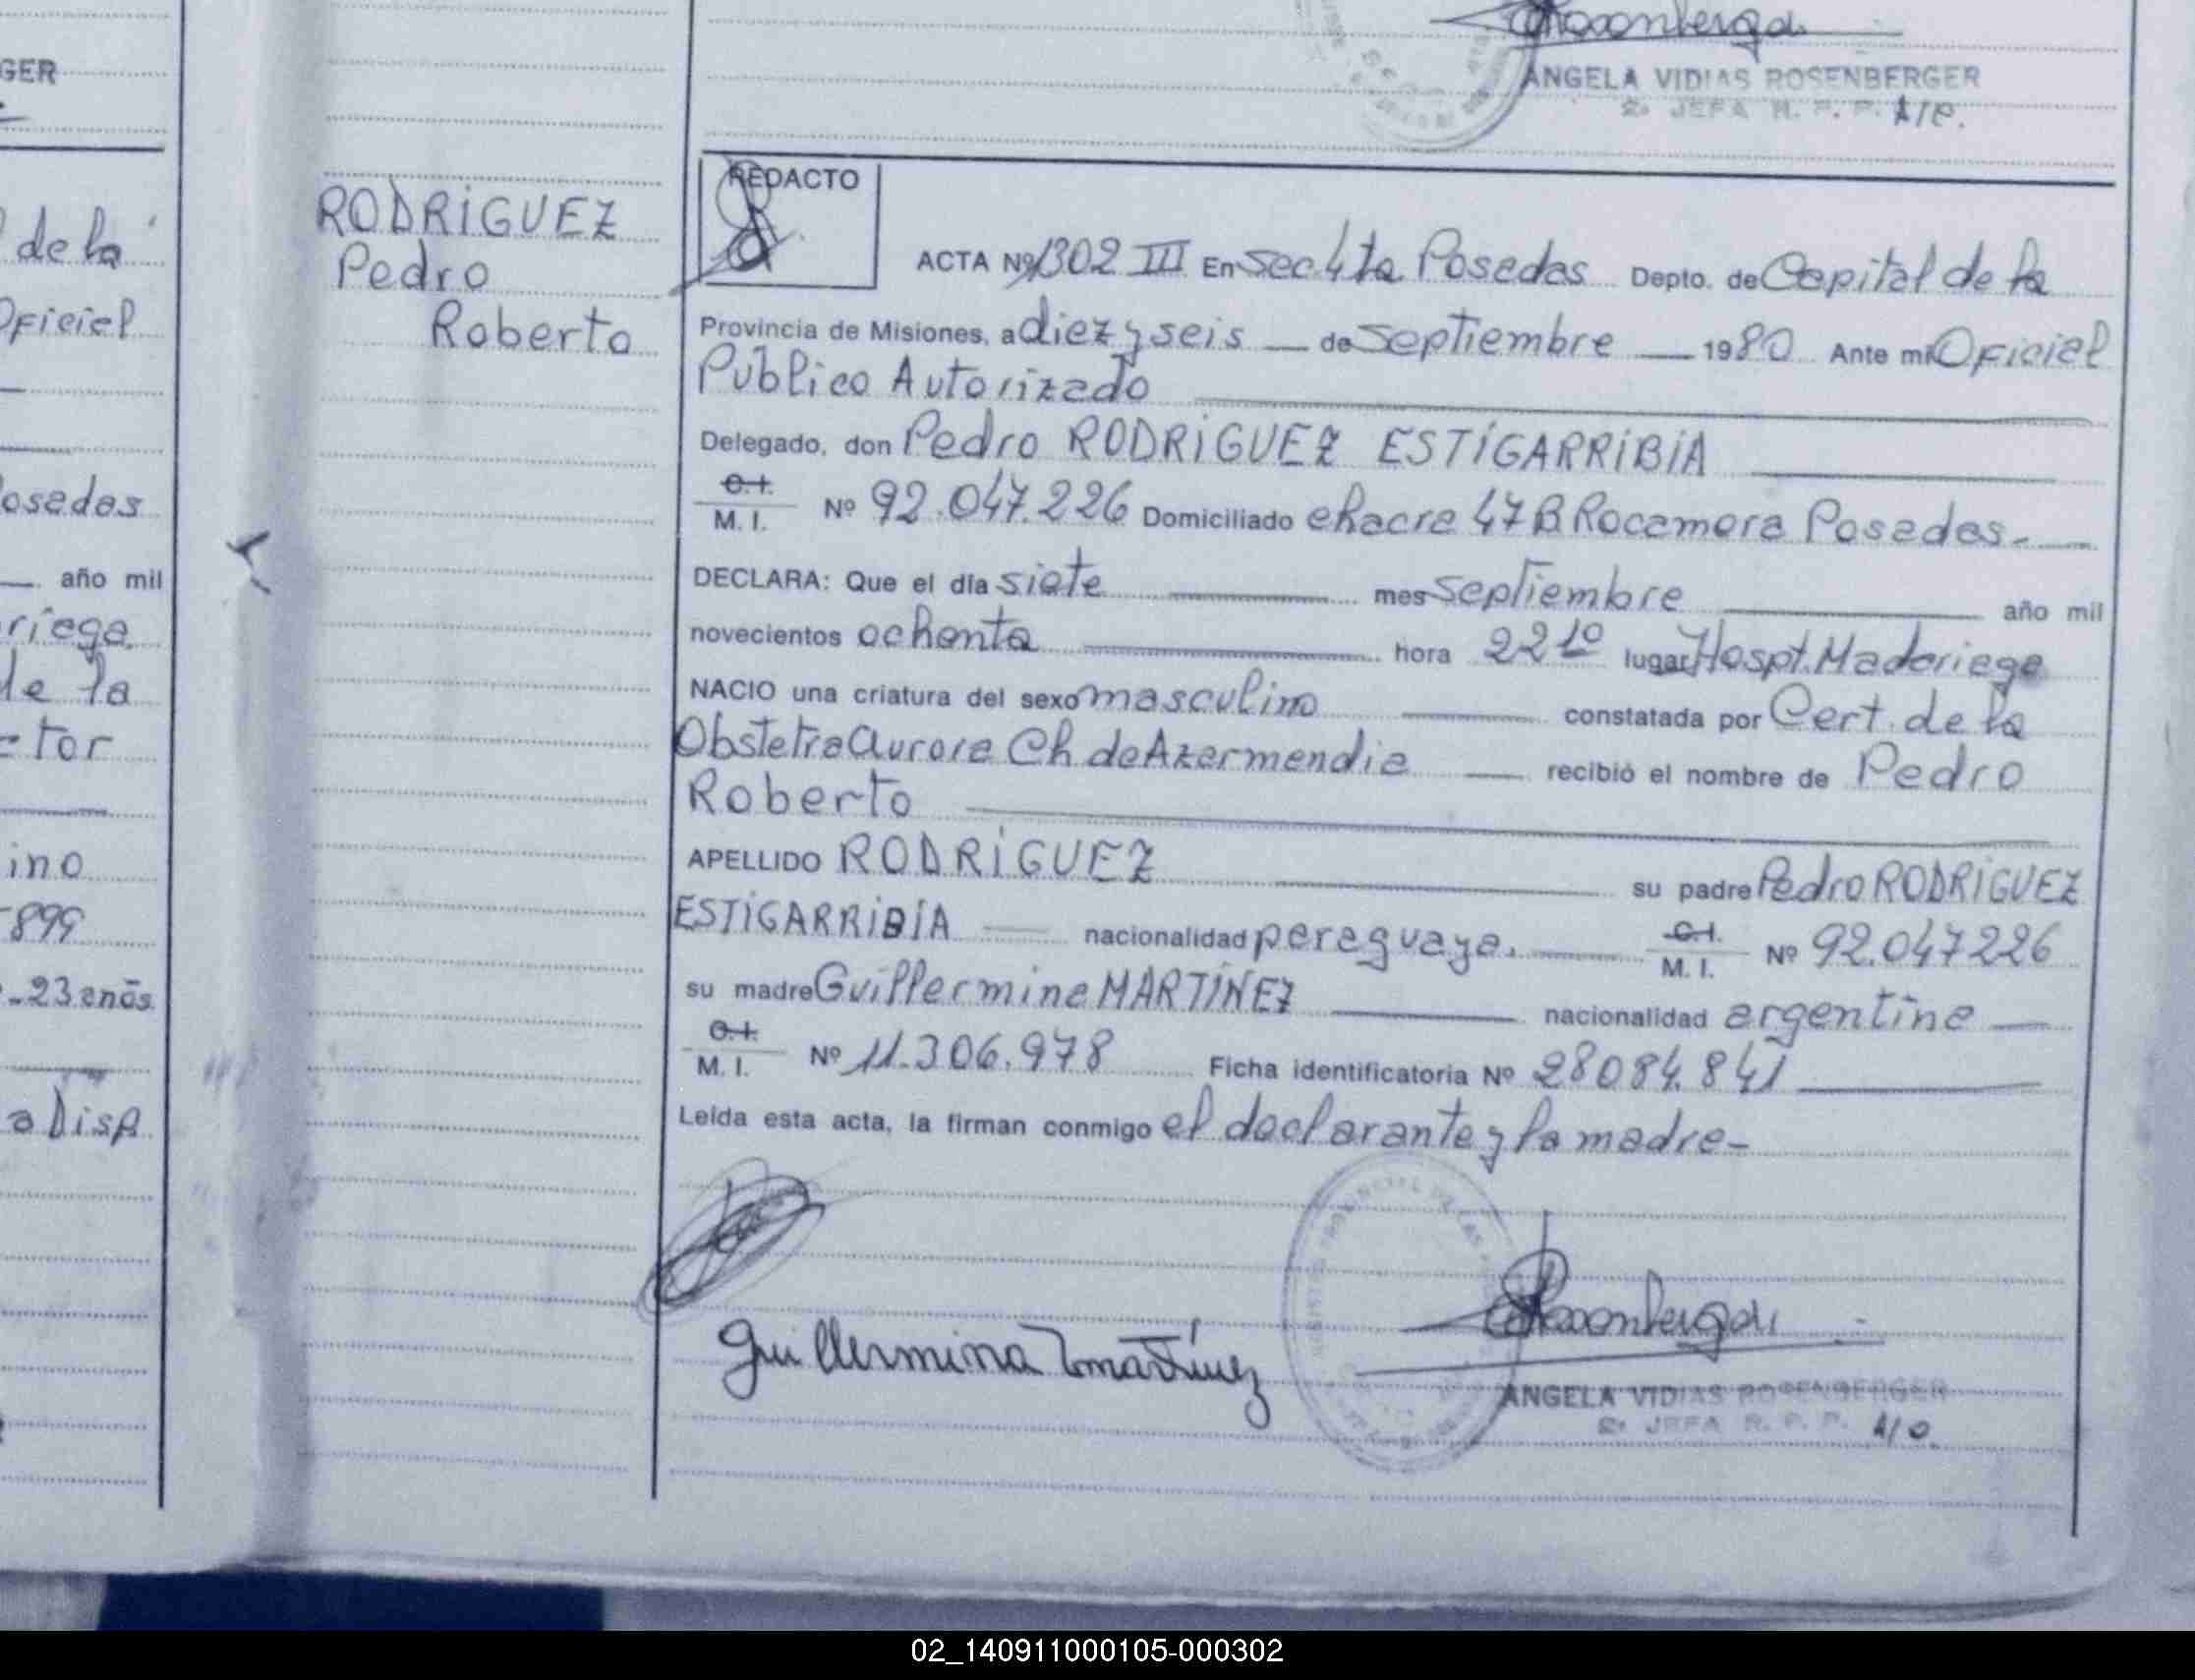 GER
de la
Oficial
osadas
año mil
riega
de la
tor
ino
899
23 años
a Disp
RODRIGUEZ
Pedro
Roberto
ANGELA VIDIAS ROSENBERGER
2. JEFA R. P. P. A/C.
REDACTO
ACTA Nº 1302 III En Sec 4ta Posadas Depto. de Capital de la
Provincia de Misiones, a diez y seis — de septiembre — 1980 Ante mi Oficial
Público Autorizado
Delegado, don Pedro RODRIGUEZ ESTIGARRIBIA
C.I.
M. I. Nº 92.047.226 Domiciliado chacra 47 B Rocamora Posadas.-
DECLARA: Que el día siete — mes septiembre — año mil
novecientos ochenta — hora 22 10 lugar Hospt. Madariaga
NACIO una criatura del sexo masculino — constatada por Cert. de la
Obstetra Aurora Ch de Azarmendia — recibió el nombre de Pedro
Roberto
APELLIDO RODRIGUEZ — su padre Pedro RODRIGUEZ
ESTIGARRIBIA — nacionalidad paraguaya. — C.I. M. I. Nº 92.047226
su madre Guillermina MARTÍNEZ — nacionalidad argentina —
C.I.
M. I. Nº 11.306.978 Ficha identificatoria Nº 28084.841
Leída esta acta, la firman conmigo el declarante y la madre-
Guillermina Martínez
ANGELA VIDIAS ROSENBERGER
2. JEFA R. P. P. A/C.
02_140911000105-000302